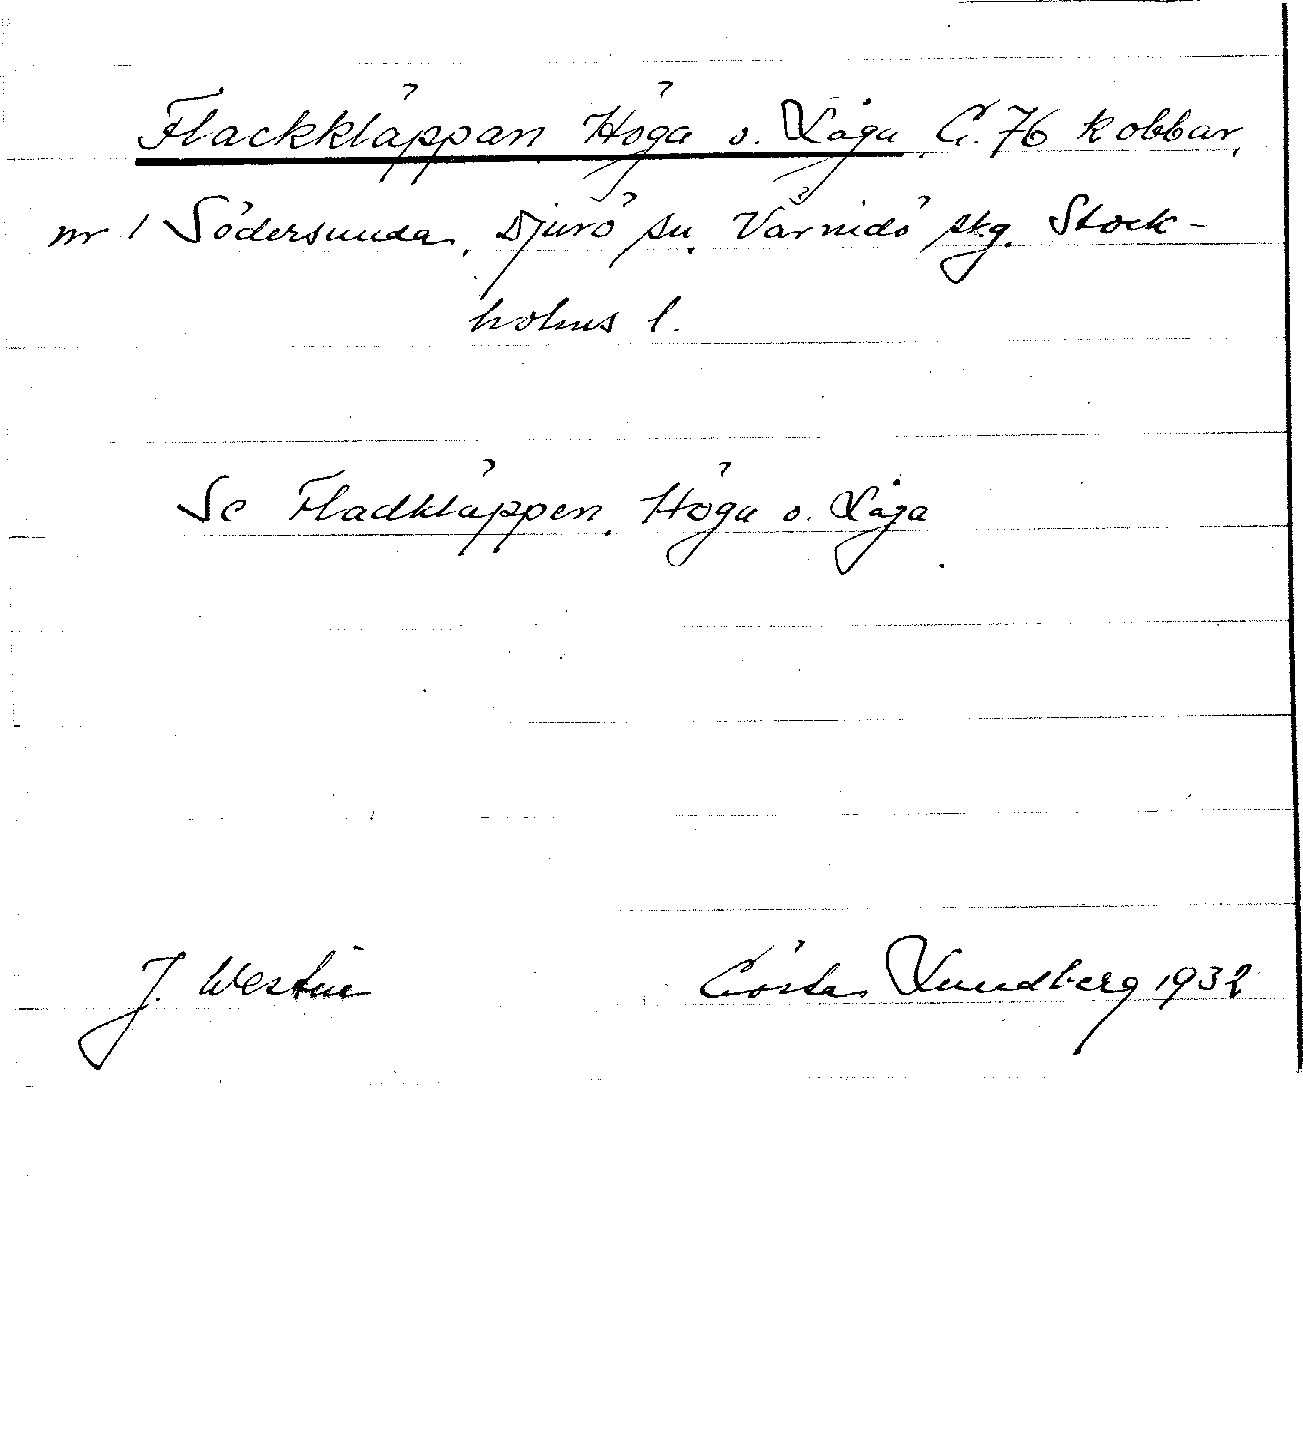 Flackkläppan Höga o. Låga G. 76 kobbar,
nr 1 Södersunda, Djurö sn, Värmdö skg. Stock-
holms l.
Se Fladkläppen, Höga o. Låga
J. Westin Gösta Lundberg 1932